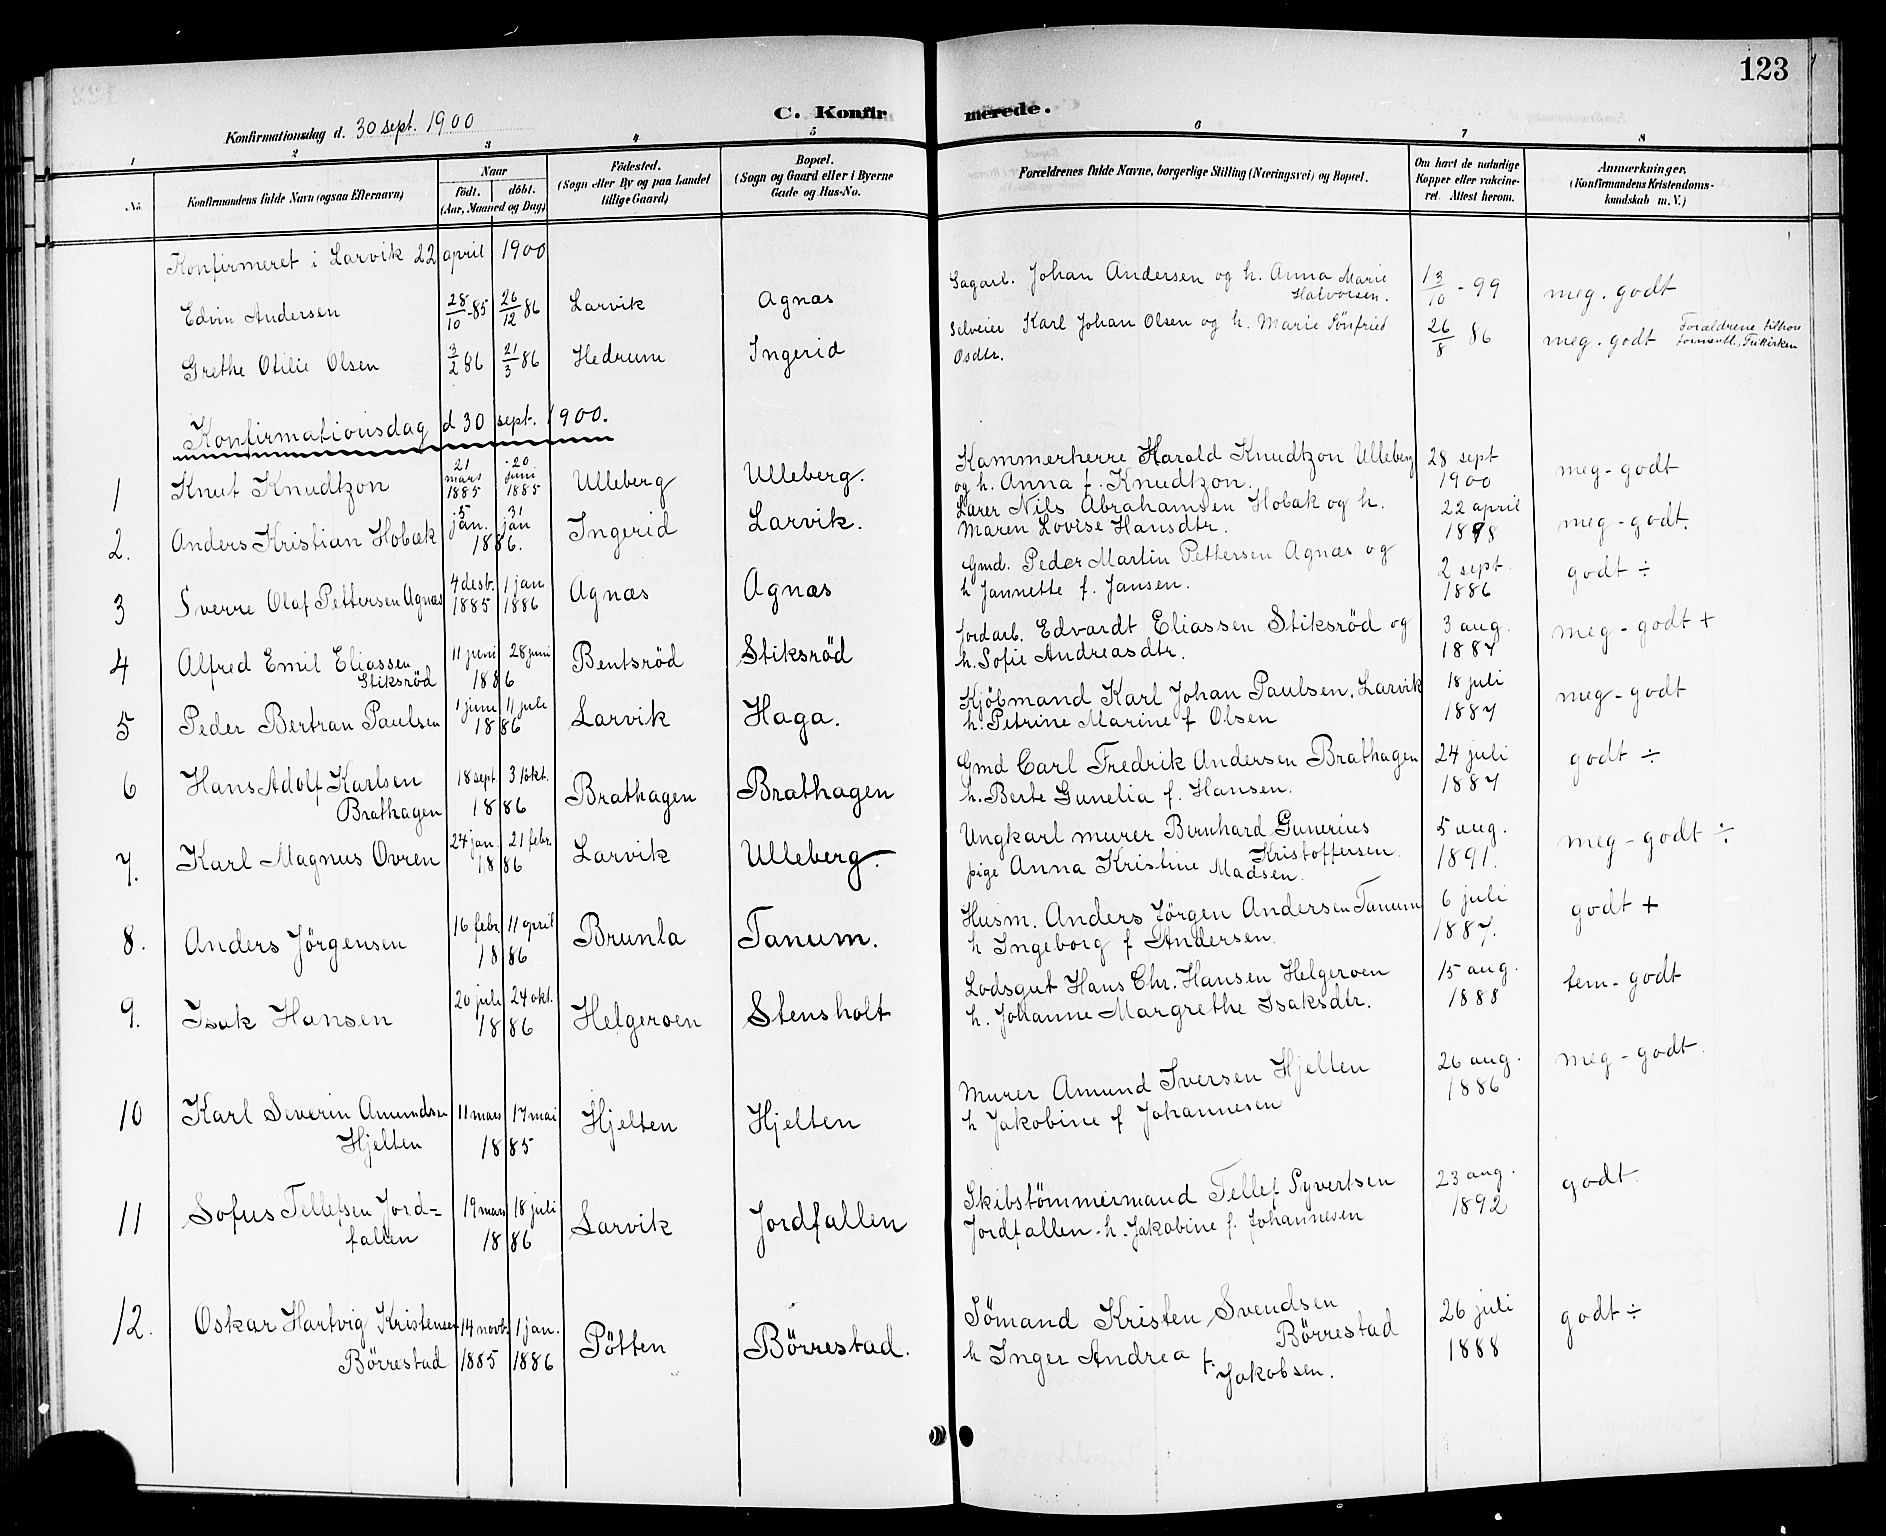 123
C. Konfirmerede.
Konfirmationsdag d. 30 sept. 1900
1 2 3 4 5 6 7 8
No.
Konfirmandens fulde Navn (ogsaa Efternavn)
Naar
født. døbt.
(Aar, Maaned og Dag)
Fødested.
(Sogn eller By og paa Landet
tillige Gaard)
Bopæl.
(Sogn og Gaard eller i Byerne
Gade og Hus-No.
Forældrenes fulde Navne, borgerlige Stilling (Næringsvei) og Bopæl.
Om havt de naturlige
Kopper eller vakcine-
ret. Attest herom.
Anmærkninger.
(Konfirmandens Kristendoms-
kundskab m. V.)
Konfirmeret i Larvik 22 april 1900
Edvin Andersen 28/10-85 26/12 86 Larvik Agnæs Sagarb. Johan Andersen og h. Anna Marie
Halvorsen. 13/10 - 99 meg. godt
Grethe Otilie Olsen 3/2 86 21/3 86 Hedrum Ingerid Selveier Karl Johan Olsen og h. Marie
Osdtr. 26/8 86 meg. godt Forældrene tilhør
Frikirken
Konfirmationsdag d 30 sept. 1900.
1 Knut Knudtzon 21 mars 1885 20 juni 1885 Ulleberg Ulleberg. Kammerherre Harald Knudtzon Ulleberg
og h. Anna f. Knudtzon. 28 sept 1900 meg-godt
2. Anders Kristian Hobæk 5 jan. 31 jan 1886. Ingerid Larvik. Lærer Nils Abrahamsen Hobæk og h.
Maren Lovise Hansdtr. 22 april 1898 meg-godt.
3 Sverre Olaf Pettersen Agnæs 4 desb. 1885 1 jan 1886 Agnæs Agnæs Gmd. Peder Martin Pettersen Agnæs og
h Jannette f. Jansen. 2 sept. 1886 godt ÷
4 Alfred Emil Eliassen
Stiksröd 11 juni 28 juni 1886 Bentsröd Stiksröd Jordarb. Edvardt Eliassen Stiksröd og
h. Sofie Andreasdtr. 3 aug. 1887 meg-godt +
5 Peder Bertran Paulsen 1 juni 11 juli 1886 Larvik Haga. Kjöbmand Karl Johan Paulsen, Larvik
h. Petrine Marine f Olsen 18 juli 1887 meg-godt
6 Hans Adolf Karlsen
Brathagen 18 sept. 31 okt. 1886 Brathagen Brathagen Gmd Carl Fredrik Andersen Brathagen
h. Berte Gunelia f. Hansen. 24 juli 1887 godt ÷
7. Karl Magnus Ovren 24 jan. 21 febr. 1886 Larvik Ulleberg. Ungkarl murer Bernhard Gunerius
Kristoffersen
pige Anna Kristine Madsen. 5 aug. 1891. meg-godt ÷
8. Anders Jörgensen 16 febr. 11 april 1886 Brunla Tanum. Husm. Anders Jörgen Andersen Tanum
h Ingeborg f Andersen. 6 juli 1887. godt +
9. Isak Hansen 20 juli 24 okt. 1886 Helgeroen Stensholt Lodsgut Hans Chr. Hansen Helgeroen
h. Johanne Margrethe Isaksdtr. 15 aug. 1888 tem-godt
10 Karl Severin Amundsen
Hjelten 11 mars 17 mai 1885 Hjelten Hjelten Murer Amund Iversen Hjelten
h Jakobine f Johannesen 26 aug. 1886 meg-godt.
11 Sofus Tellefsen Jord=
fallen 19 mars 18 juli 1886 Larvik Jordfallen Skibstömmermand Tellef Syvertsen
Jordfallen. h. Jakobine f. Johannesen 23 aug. 1892 godt.
12. Oskar Hartvig Kristensen
Börrestad 14 novb. 1885 1 jan. 1886 Pötten Börrestad. Sömand Kristen Svendsen
Börrestad
h Inger Andrea f. Jakobsen. 26 juli 1888 godt ÷